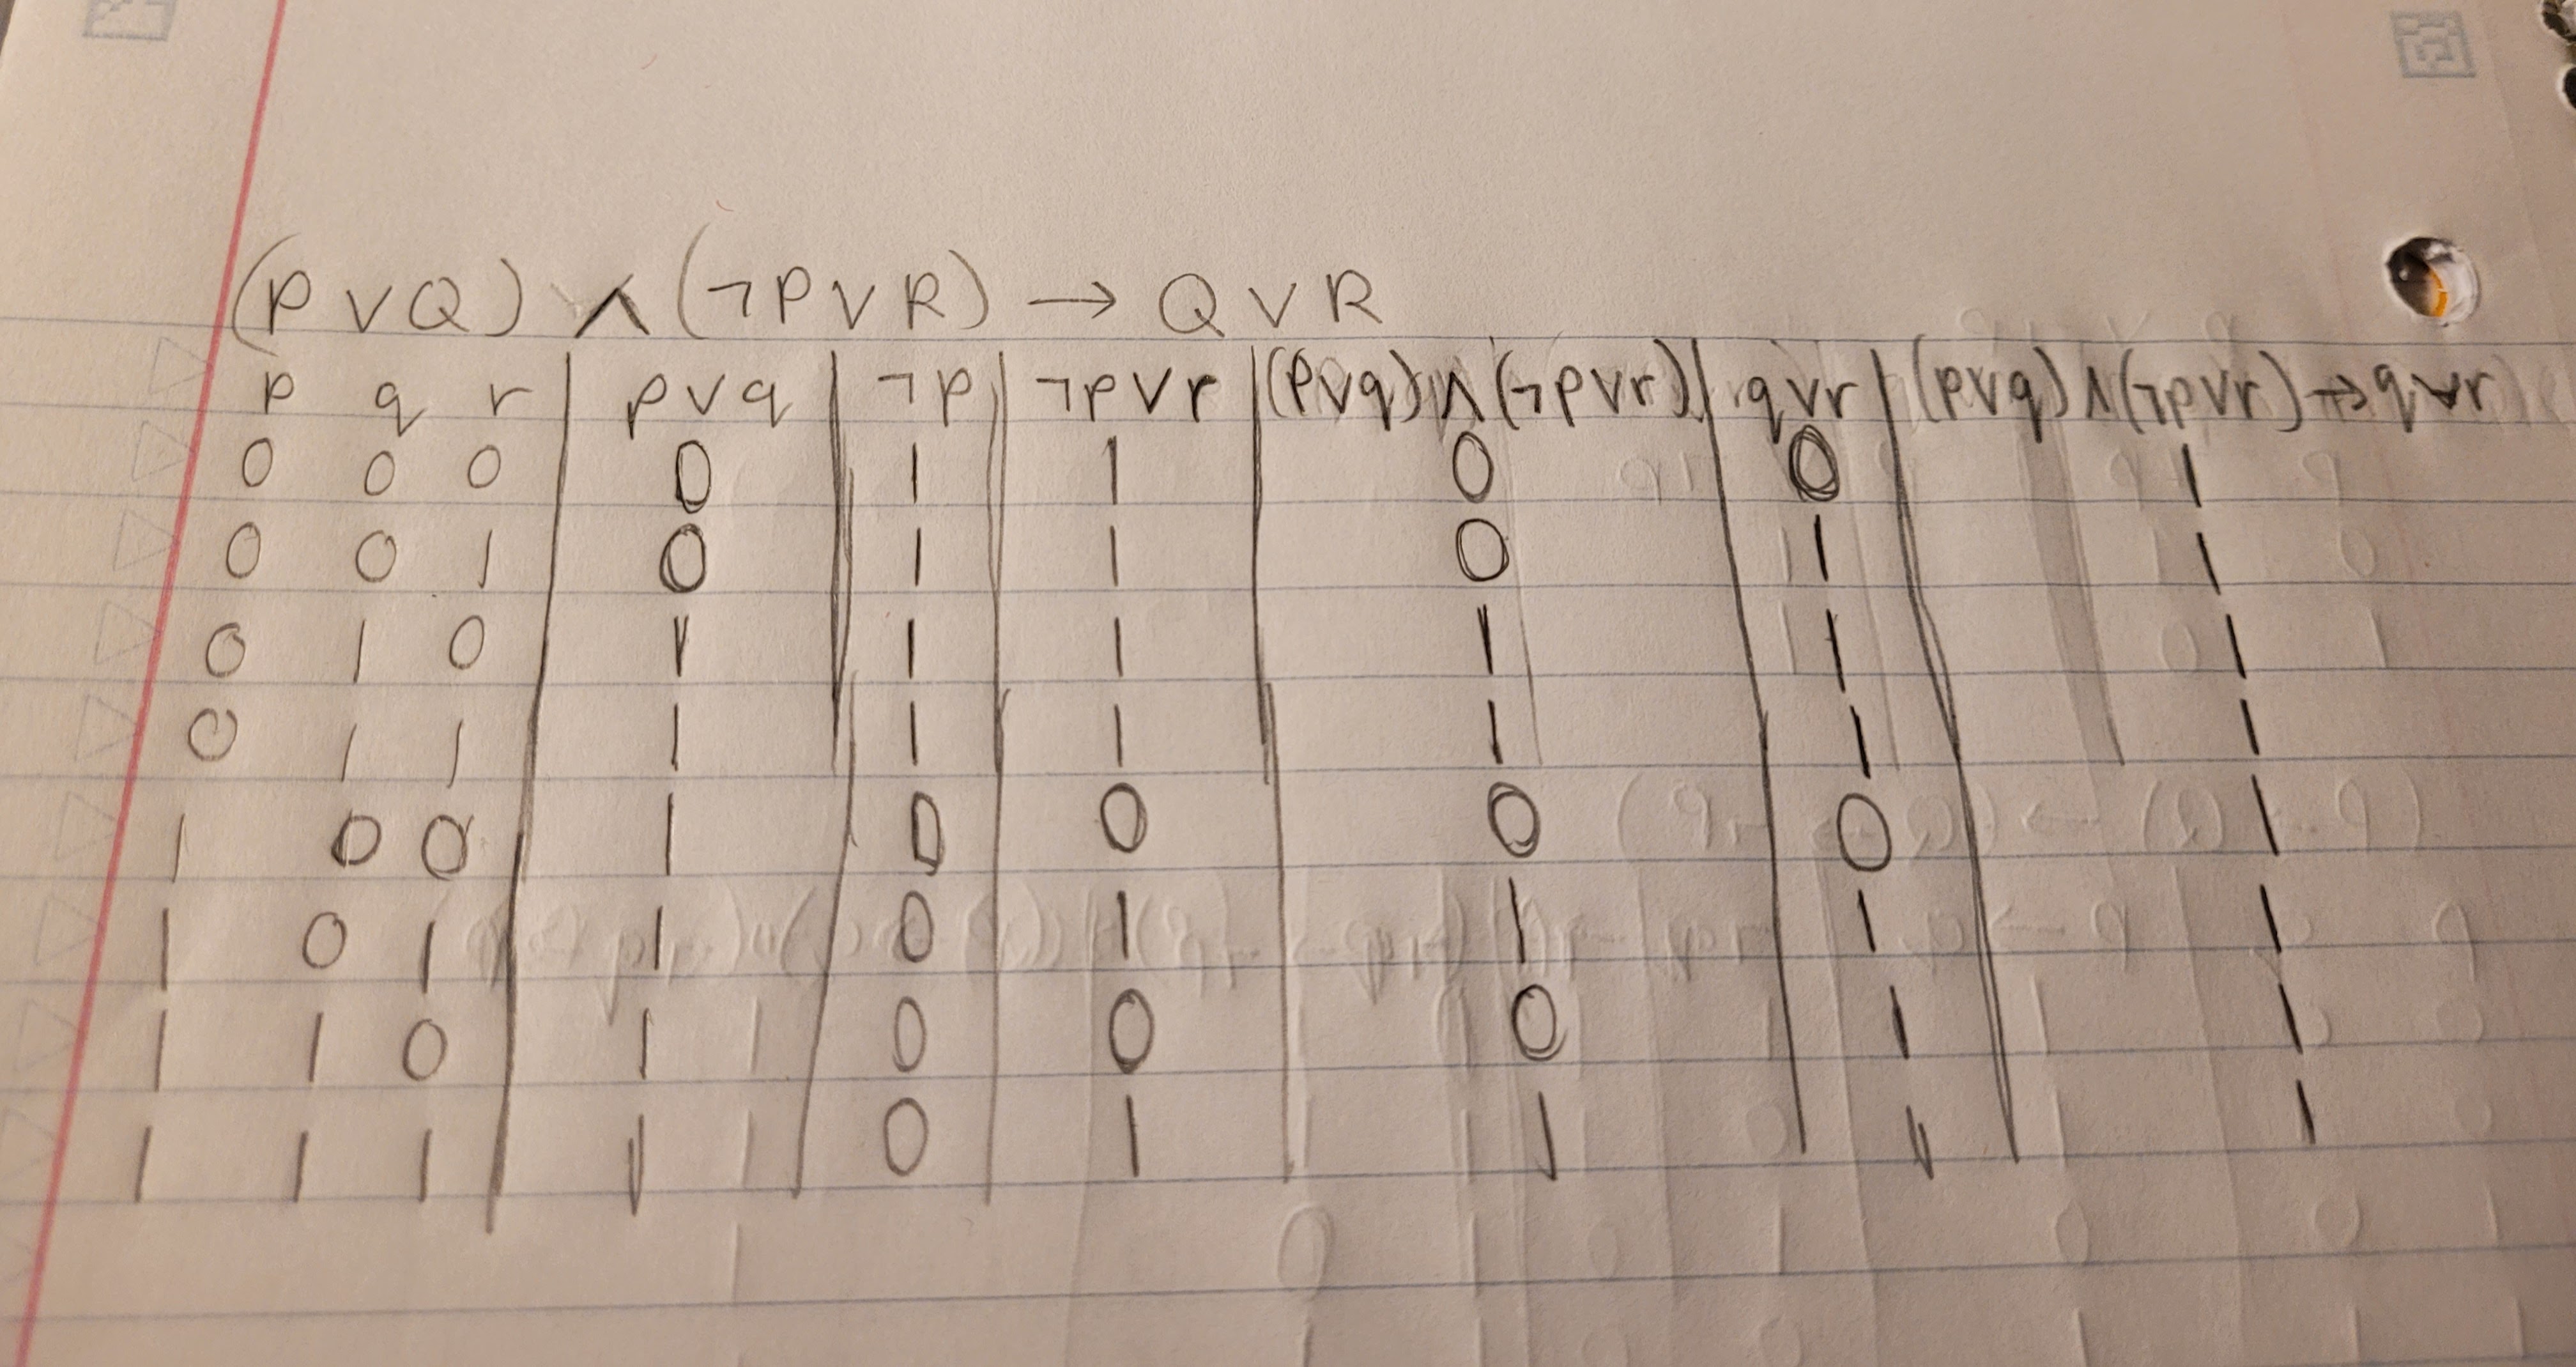 (P ∨ Q) ∧ (¬P ∨ R) → Q ∨ R
p q r | p ∨ q | ¬p | ¬p ∨ r | (p∨q) ∧ (¬p∨r) | q∨r | (p∨q) ∧ (¬p∨r) → q∨r
0 0 0 | 0 | 1 | 1 | 0 | 0 | 1
0 0 1 | 0 | 1 | 1 | 0 | 1 | 1
0 1 0 | 1 | 1 | 1 | 1 | 1 | 1
0 1 1 | 1 | 1 | 1 | 1 | 1 | 1
1 0 0 | 1 | 0 | 0 | 0 | 0 | 1
1 0 1 | 1 | 0 | 1 | 1 | 1 | 1
1 1 0 | 1 | 0 | 0 | 0 | 1 | 1
1 1 1 | 1 | 0 | 1 | 1 | 1 | 1